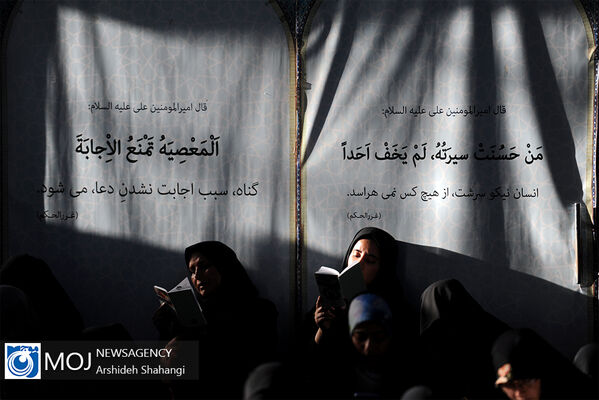 قال امیرالمومنین علی علیه السلام:
مَنْ حَسُنَتْ سیرَتُهُ، لَمْ یَخَفْ اَحَداً
انسان نیکو سِرشت، از هیچ کس نمی هراسد.
(غررالحکم)
قال امیرالمومنین علی علیه السلام:
اَلْمَعْصِیَهُ تَمْنَعُ الْاِجابَةَ
گناه، سبب اجابت نشدنِ دعا، می شود.
(غررالحکم)
MOJ NEWSAGENCY
Arshideh Shahangi